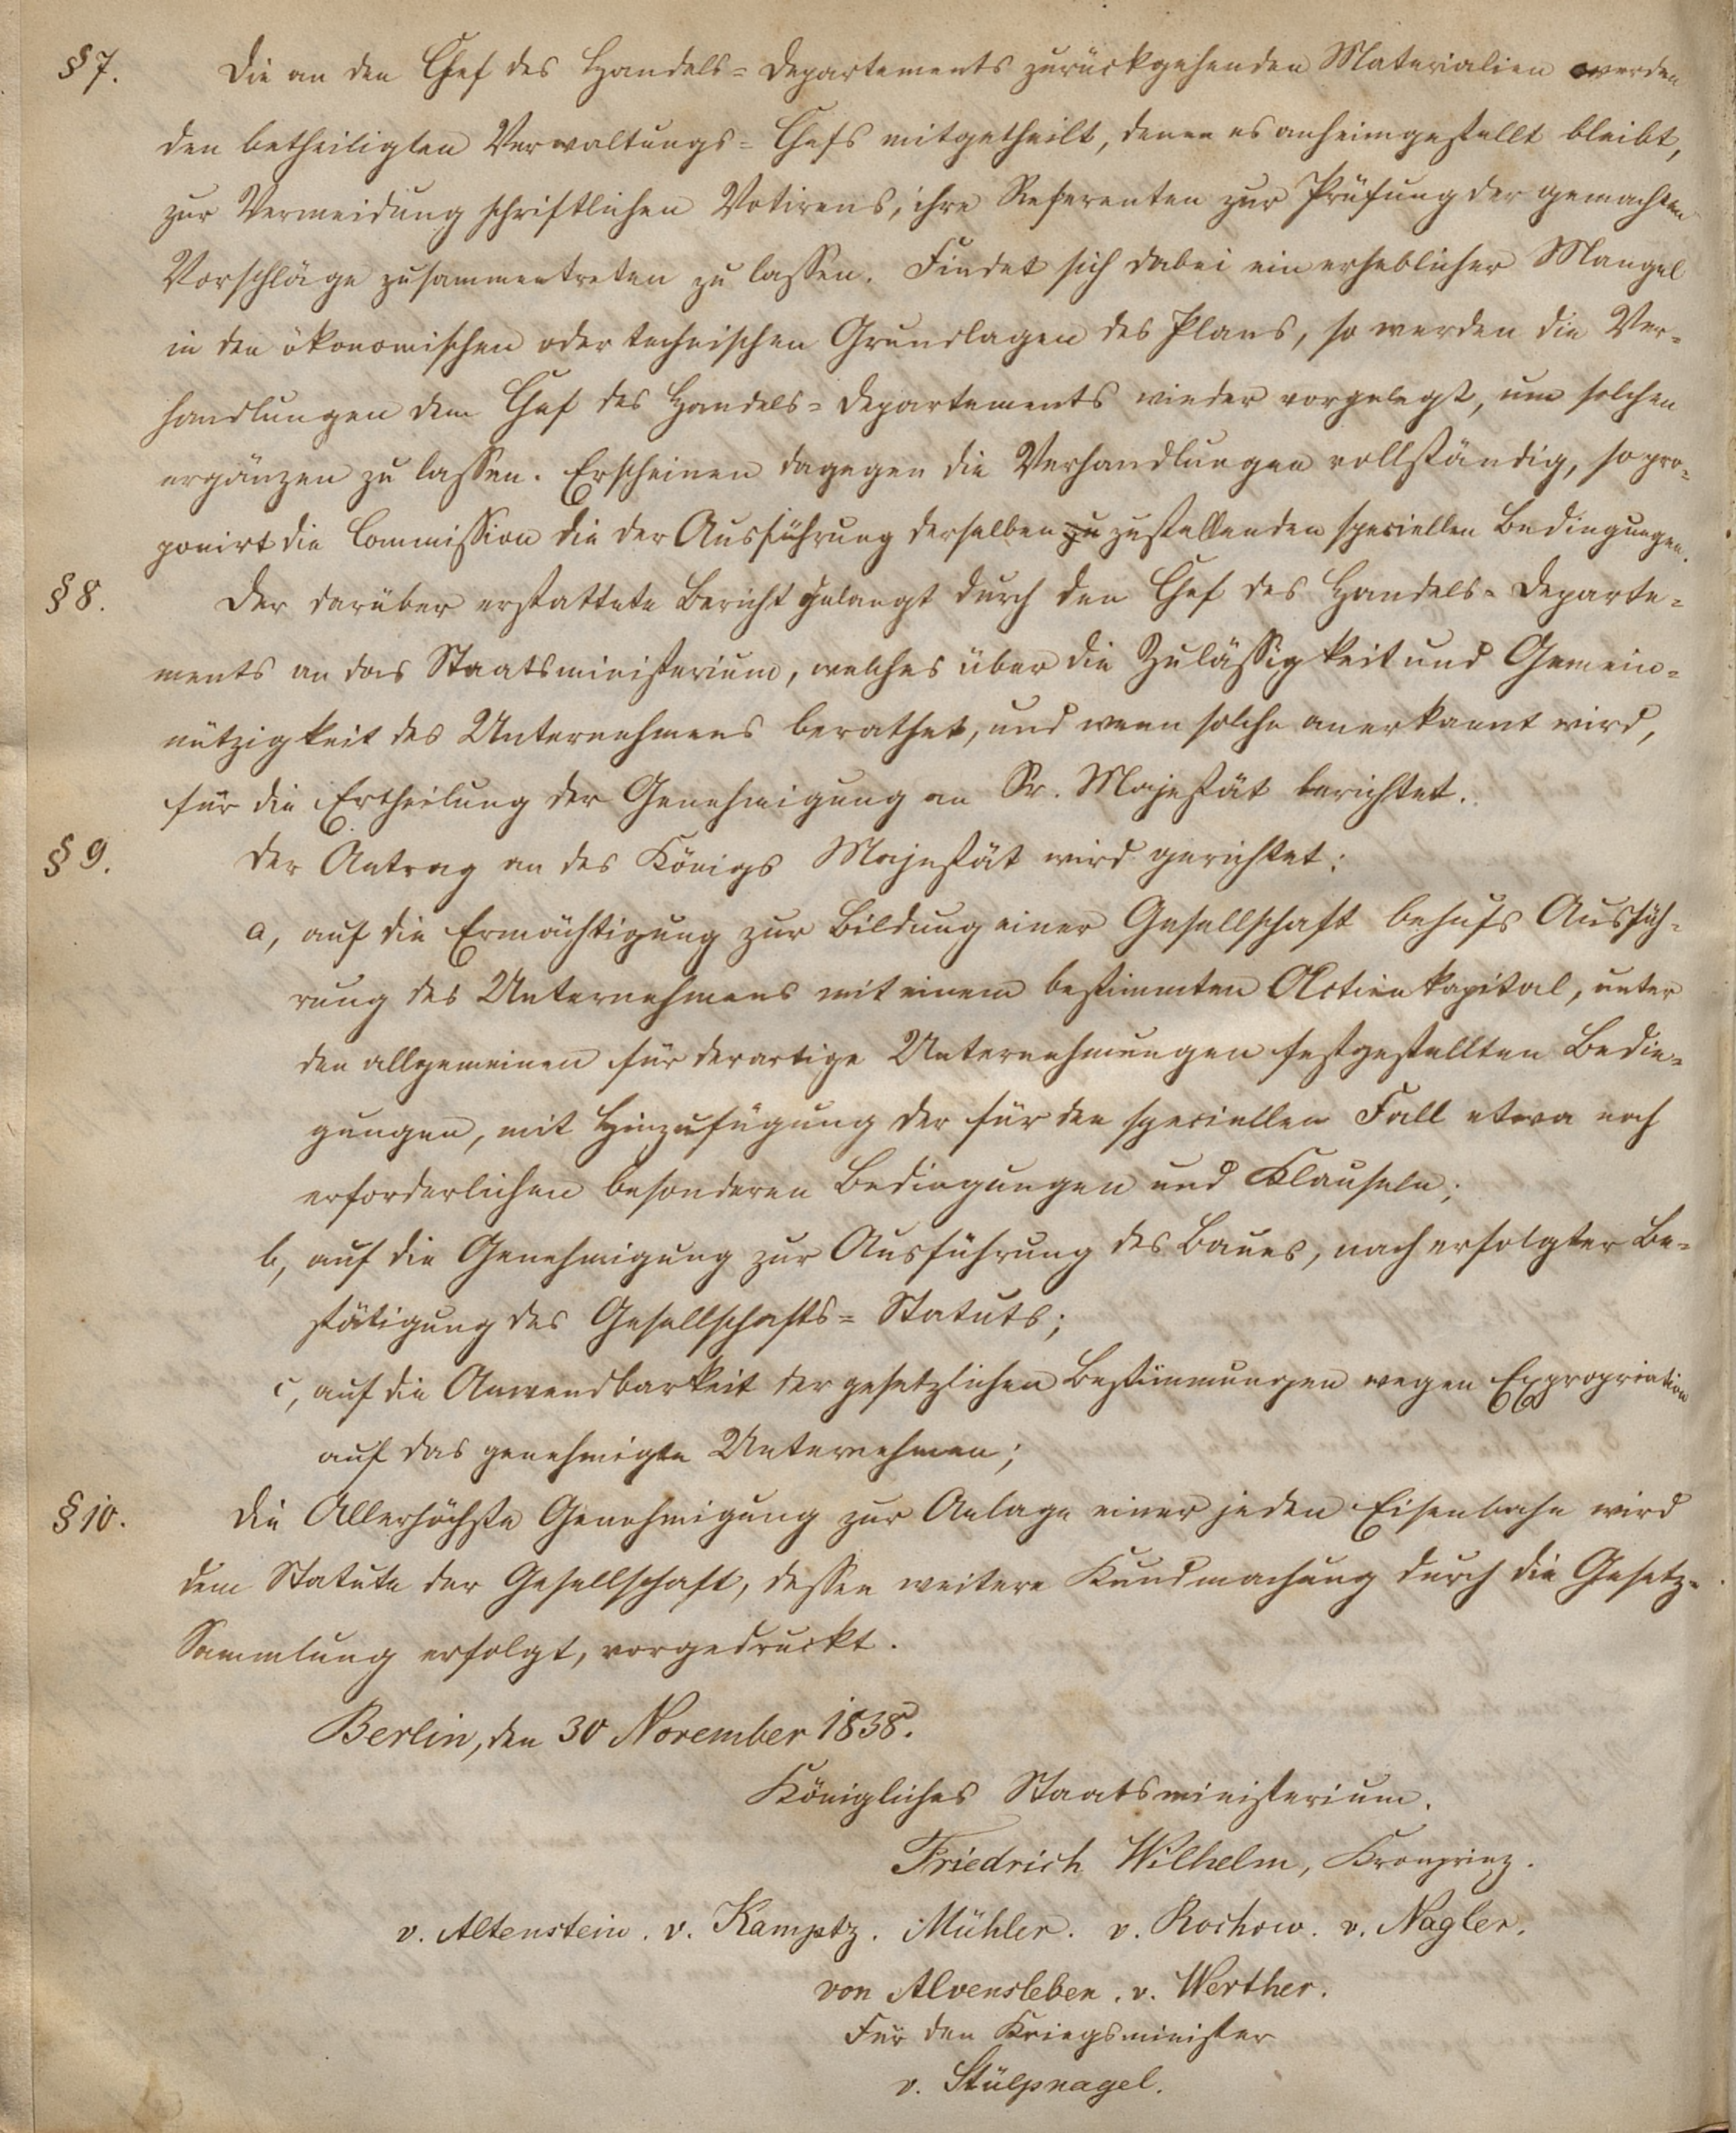 § 7. Die an den Chef des Handels= Departements zurückgehenden Materialien werden
den betheiligten Verwaltungs= Chefs mitgetheilt, denen es anheimgestellt bleibt,
zur Vermeidung schriftlichen Votirens, ihre Referenten zur Prüfung der gemachten
Vorschläge zusammentreten zu lassen. Findet sich dabei ein erheblicher Mangel
in den ökonomischen oder technischen Grundlagen des Plans, so werden die Ver=
handlungen dem Chef des Handels= Departements wieder vorgelegt, um solchen
ergänzen zu lassen. Erscheinen dagegen die Verhandlungen vollständig, so pro=
ponirt die Commission die der Ausführung derselben zu zustellenden speciellen Bedingungen.
§ 8. Der darüber erstattete Bericht gelangt durch den Chef des Handels= Departe=
ments an das Staatsministerium, welches über die Zulässigkeit und Gemein=
nützigkeit des Unternehmens berathet, und wenn solche anerkannt wird,
für die Ertheilung der Genehmigung an Sr. Majestät berichtet.
§ 9. Der Antrag an des Königs Majestät wird gerichtet:
a, auf die Ermächtigung zur Bildung einer Gesellschaft behufs Ausfüh=
rung des Unternehmens mit einem bestimmten Actienkapital, unter
den allgemeinen für derartige Unternehmungen festgestellten Bedin=
gungen, mit Hinzufügung der für den speciellen Fall etwa noch
erforderlichen besonderen Bedingungen und Klauseln;
b, auf die Genehmigung zur Ausführung des Baues, nach erfolgter Be=
stätigung des Gesellschafts= Statuts;
c, auf die Anwendbarkeit der gesetzlichen Bestimmungen wegen Expropriation
auf das genehmigte Unternehmen;
§ 10. Die Allerhöchste Genehmigung zur Anlage einer jeden Eisenbahn wird
dem Statute der Gesellschaft, dessen weitere Kundmachung durch die Gesetz=
Sammlung erfolgt, vorgedruckt.
Berlin, den 30 November 1838.
Königliches Staatsministerium.
Friedrich Wilhelm, Kronprinz.
v. Altenstein. v. Kamptz. Mühler. v. Rochow. v. Nagler.
von Alvensleben. v. Werther.
Für den Kriegsminister
v. Stülpnagel.